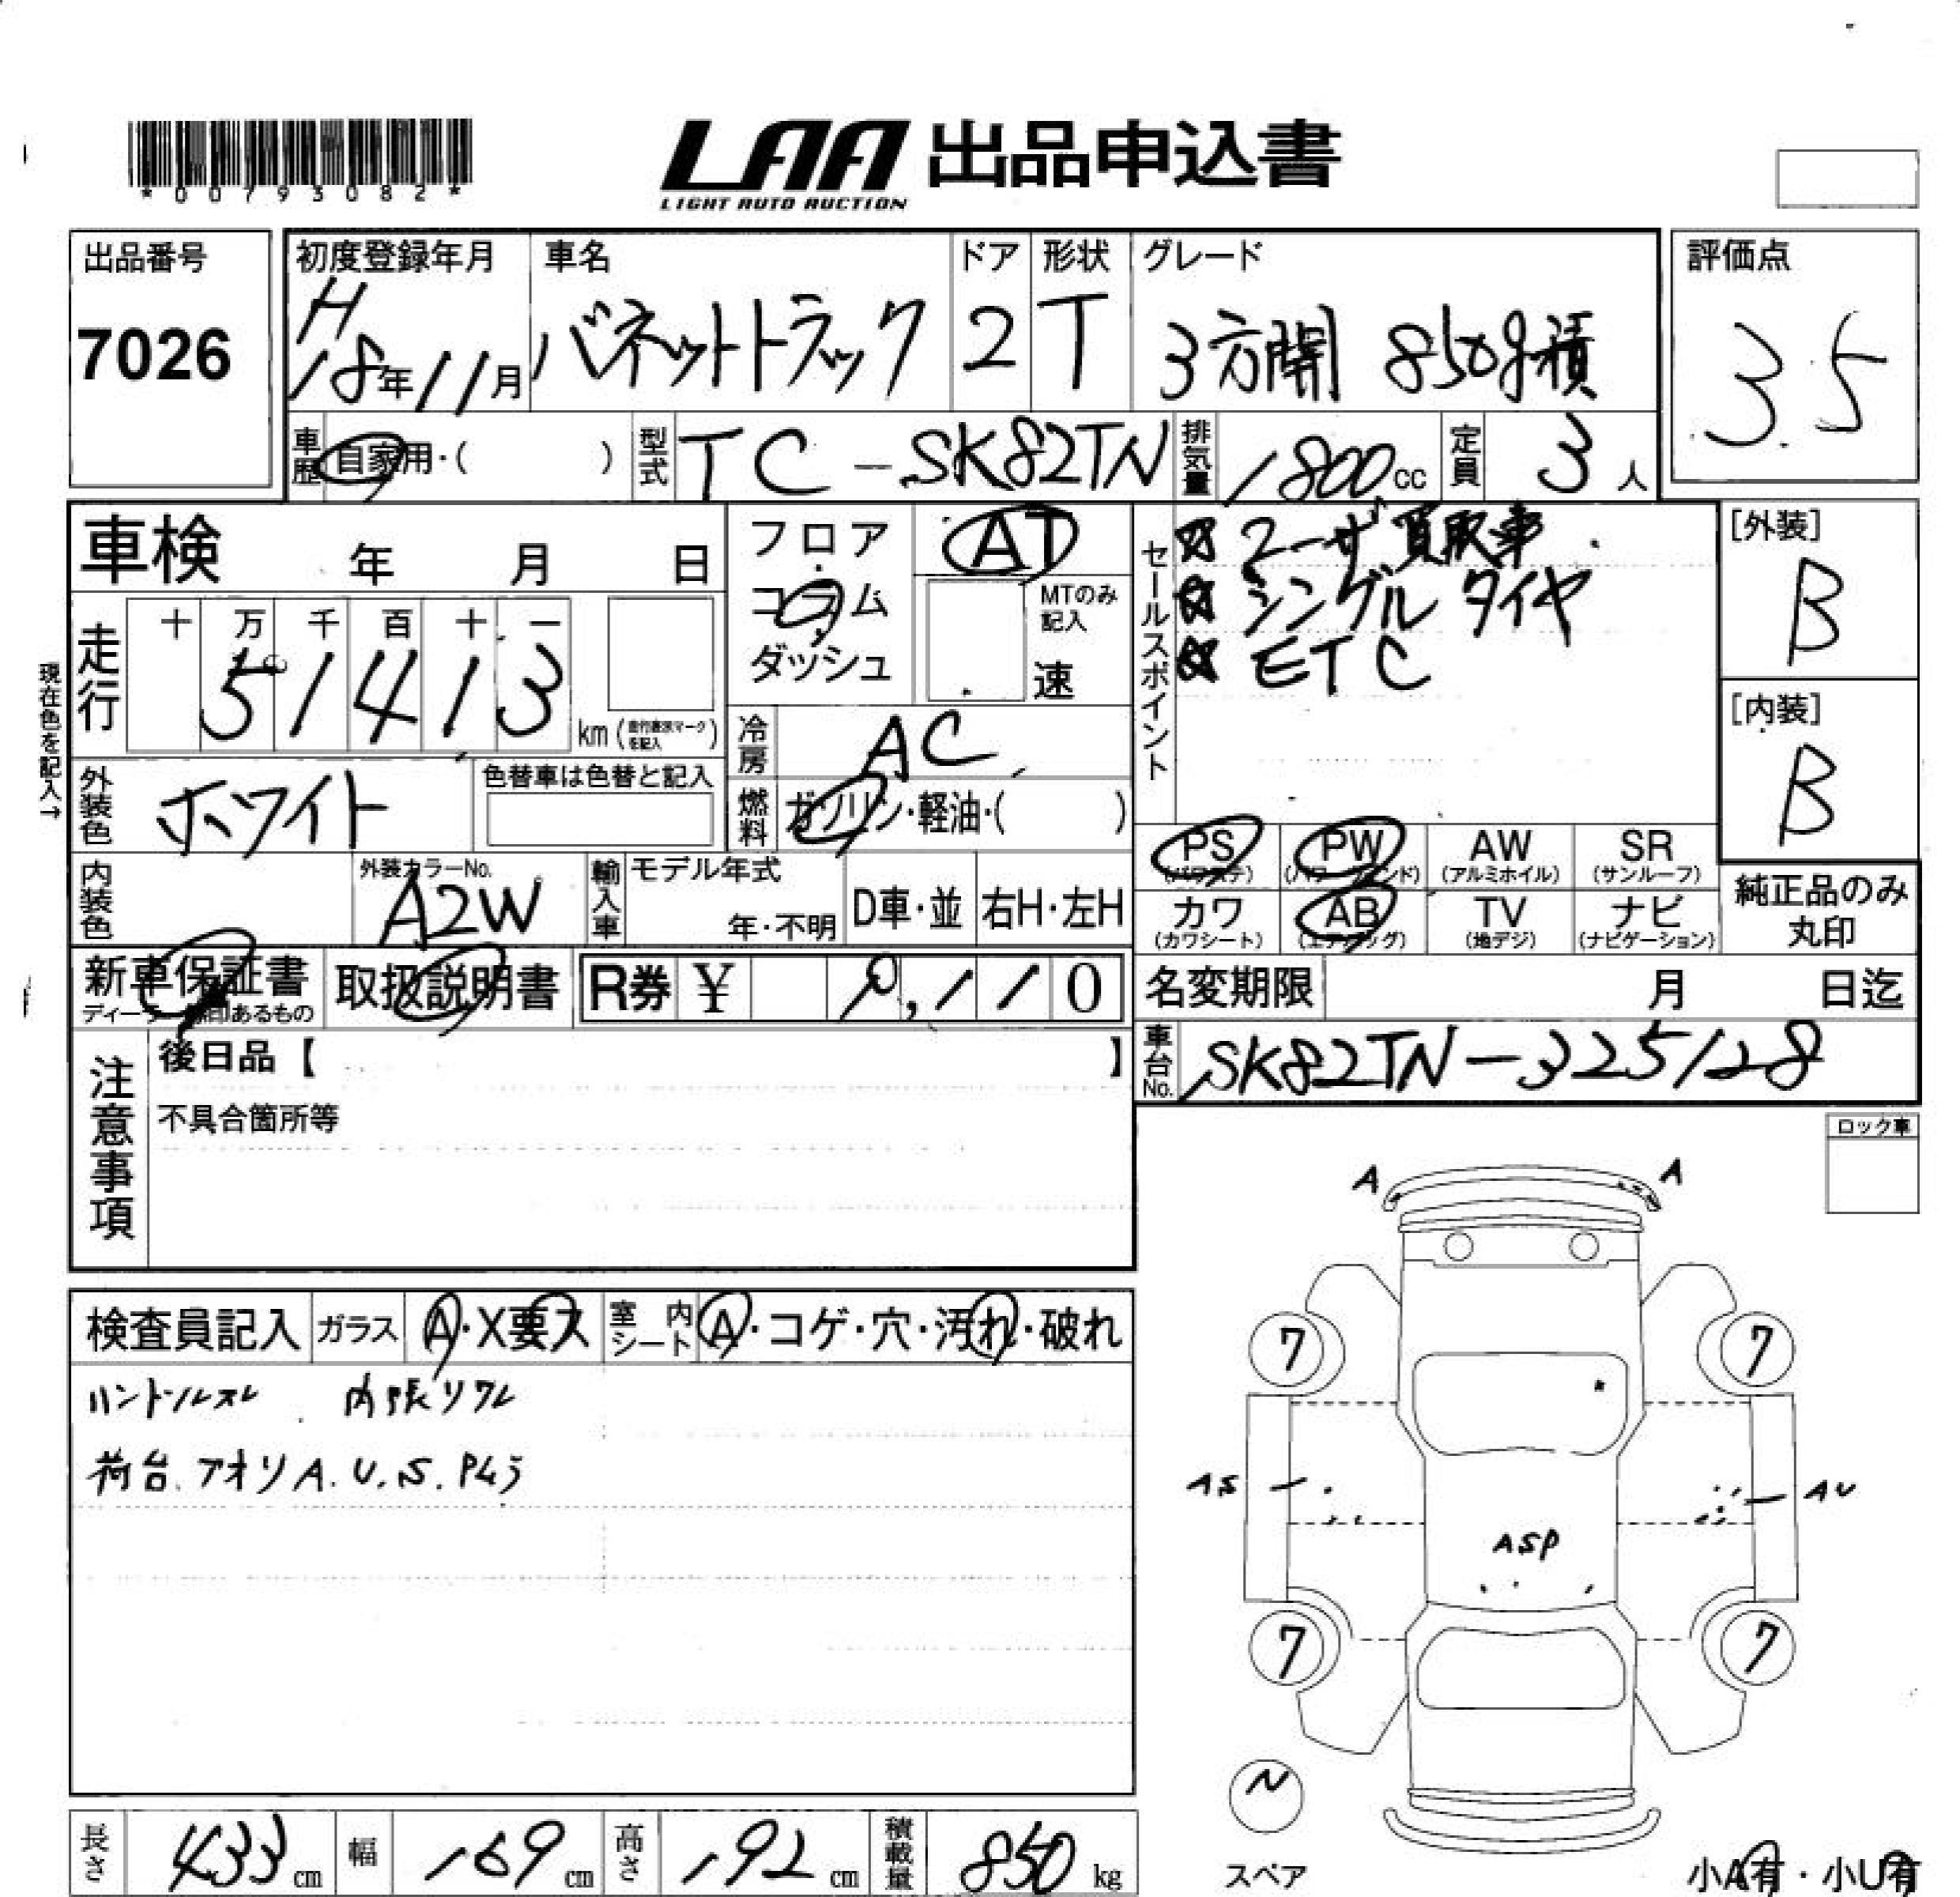 *00793082*
LAA 出品申込書
LIGHT AUTO AUCTION
出品番号
7026
初度登録年月
H
18年11月
車名
バネットトラック
ドア
2
形状
T
グレード
3方開 850kg積
評価点
3.5
車歴
自家用・( )
型式
TC-SK82TN
排気量
1800cc
定員
3人
車検 年 月 日
走行
十 万 千 百 十 一
51413
km(走行表示マークを記入)
現在色を記入→
フロア
コラム
ダッシュ
AT
MTのみ記入
速
冷房
AC
燃料
ガソリン・軽油・( )
セールスポイント
☆ユーザ買取車
☆シングルタイヤ
☆ETC
[外装]
B
[内装]
B
外装色
ホワイト
色替車は色替と記入
内装色
外装カラーNo.
A2W
輸入車
モデル年式
年・不明
D車・並
右H・左H
PS
(パワステ)
PW
(パワーウィンド)
AW
(アルミホイル)
SR
(サンルーフ)
カワ
(カワシート)
AB
(エアバッグ)
TV
(地デジ)
ナビ
(ナビゲーション)
純正品のみ
丸印
新車保証書
取扱説明書
R券 ¥ 9,110
名変期限 月 日迄
車台No.
SK82TN-325128
注意事項
後日品【 】
不具合箇所等
ロック車
検査員記入
ガラス
A・X要ス
室内シート
A・コゲ・穴・汚れ・破れ
ハンドルスレ 内張リワレ
荷台.アオリA.U.S.Pムラ
A A
7 7
AS AU
ASP
7 7
N
スペア
小A有・小U有
長さ
433cm
幅
169cm
高さ
192cm
積載量
850kg